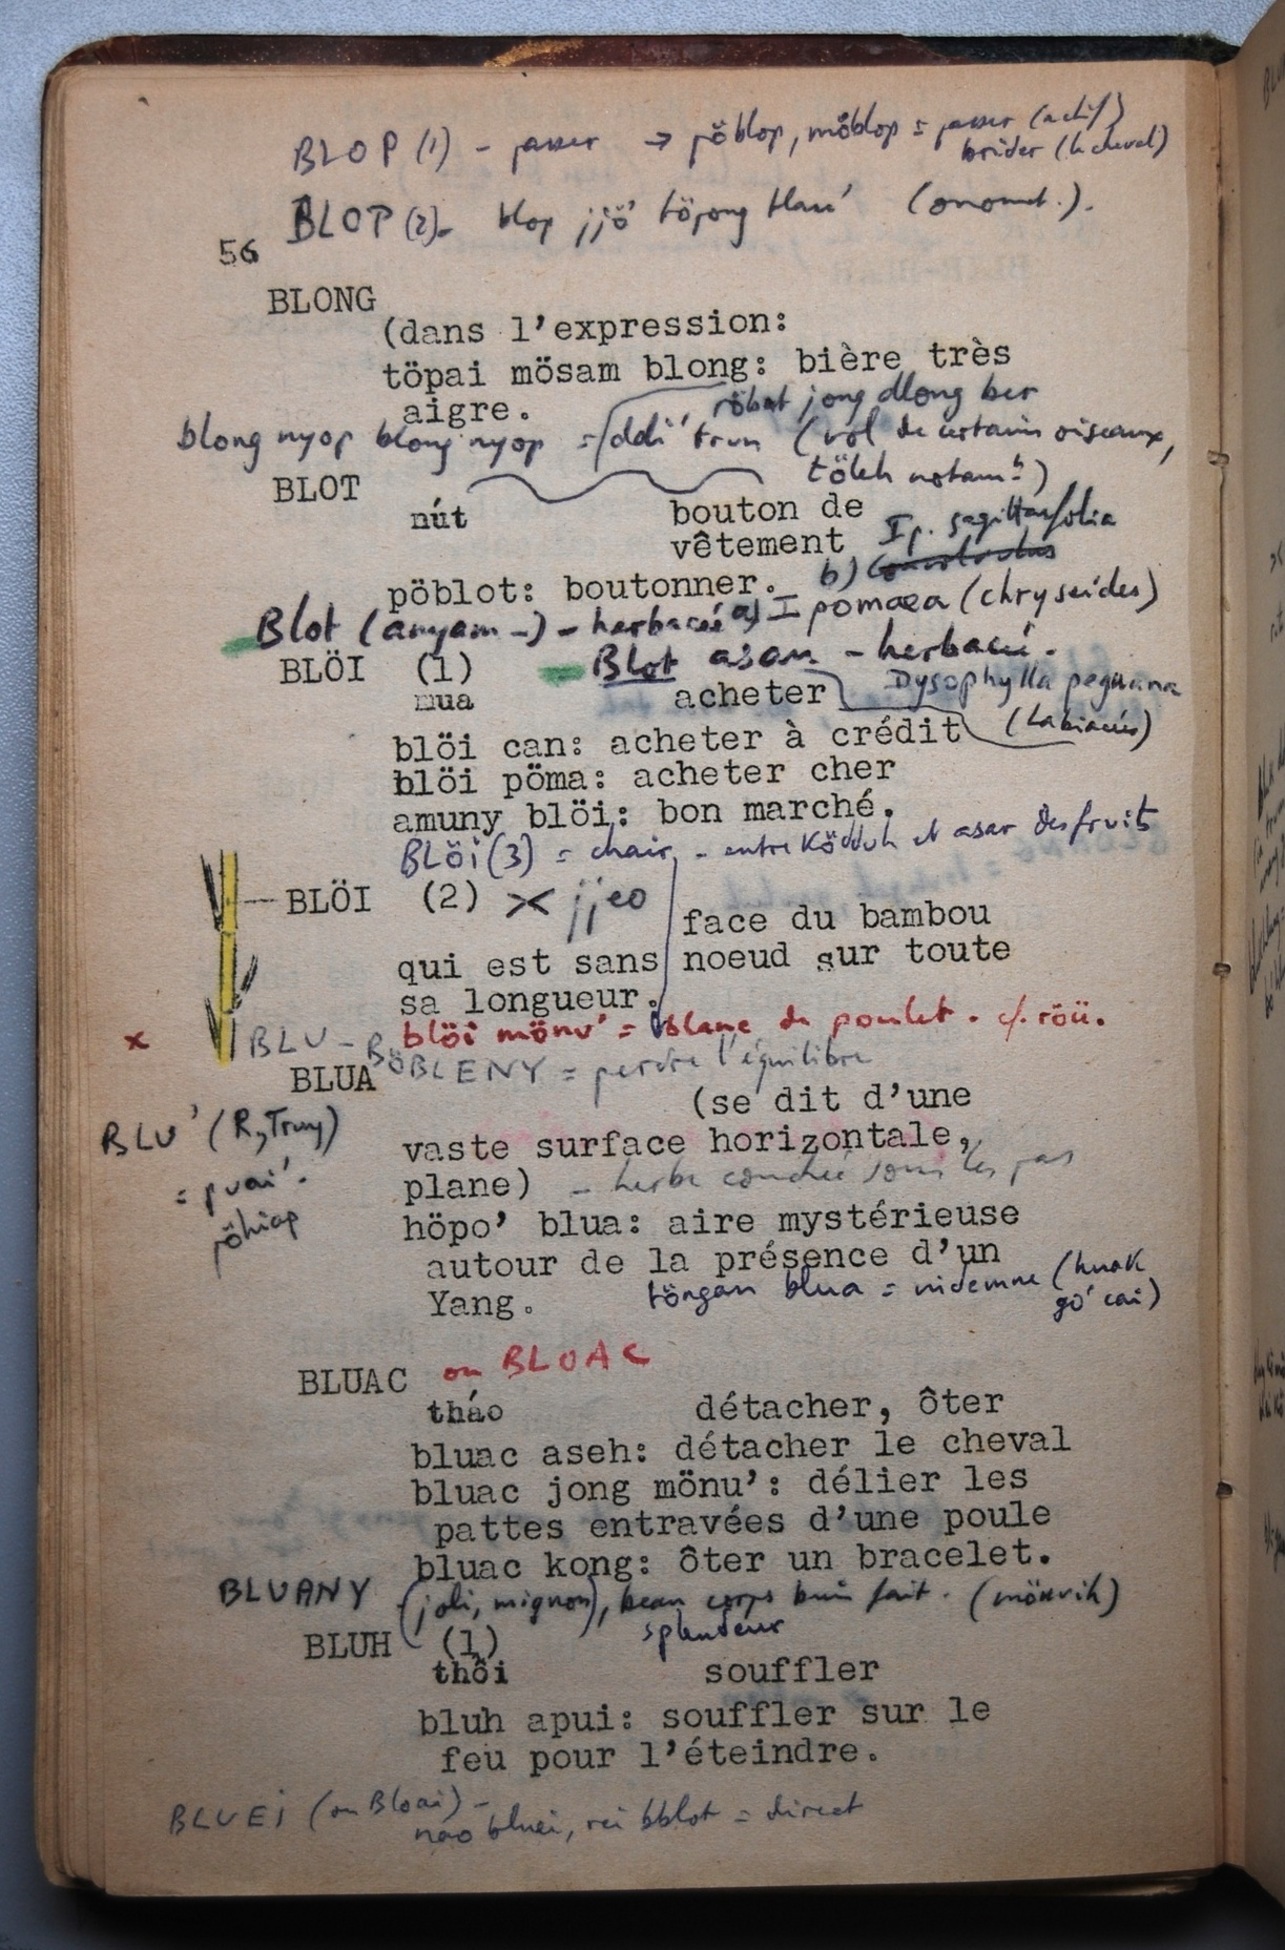 BLOP (1) - passer → pöblop, möblop = passer (actif)
brider (le cheval)
BLOP (2) - blop jjö töpong (onomat.).
56
BLONG
(dans l'expression:
töpai mösam blong: bière très
aigre.
röbat jong dlong ber
blong nyop blong nyop = ddi' trun (vol de certains oiseaux,
töleh notamt)
BLOT
nút bouton de
vêtement
Ip. sagittaefolia
pöblot: boutonner. b)
Blot (anyam -) - herbacée a) Ipomaea (chryseides)
BLÖI (1) Blot asan - herbacée.
mua acheter Dysophylla peguana
(Labiacées)
blöi can: acheter à crédit
blöi pöma: acheter cher
amuny blöi: bon marché.
BLÖI (3) = chair, - entre ködduh et asar des fruits
BLÖI (2) >< jjeo
face du bambou
qui est sans noeud sur toute
sa longueur.
x blöi mönu' = blanc de poulet. cf. röü.
BLU - BÖBLENY = perdre l'équilibre
BLUA
(se dit d'une
BLU' (R, Trung) vaste surface horizontale,
= puai'. plane) - herbe couchée sous les pas
pöhiap
höpo' blua: aire mystérieuse
autour de la présence d'un
Yang. töngan blua = indemne (huak
gö' cai)
BLUAC ou BLOAC
tháo détacher, ôter
bluac aseh: détacher le cheval
bluac jong mönu': délier les
pattes entravées d'une poule
bluac kong: ôter un bracelet.
BLUANY (joli, mignon), beau corps bien fait. (mönvih)
splendeur
BLUH (1)
thổi souffler
bluh apui: souffler sur le
feu pour l'éteindre.
BLUEI (ou Bloai) -
nao bluei, rei bblot = direct